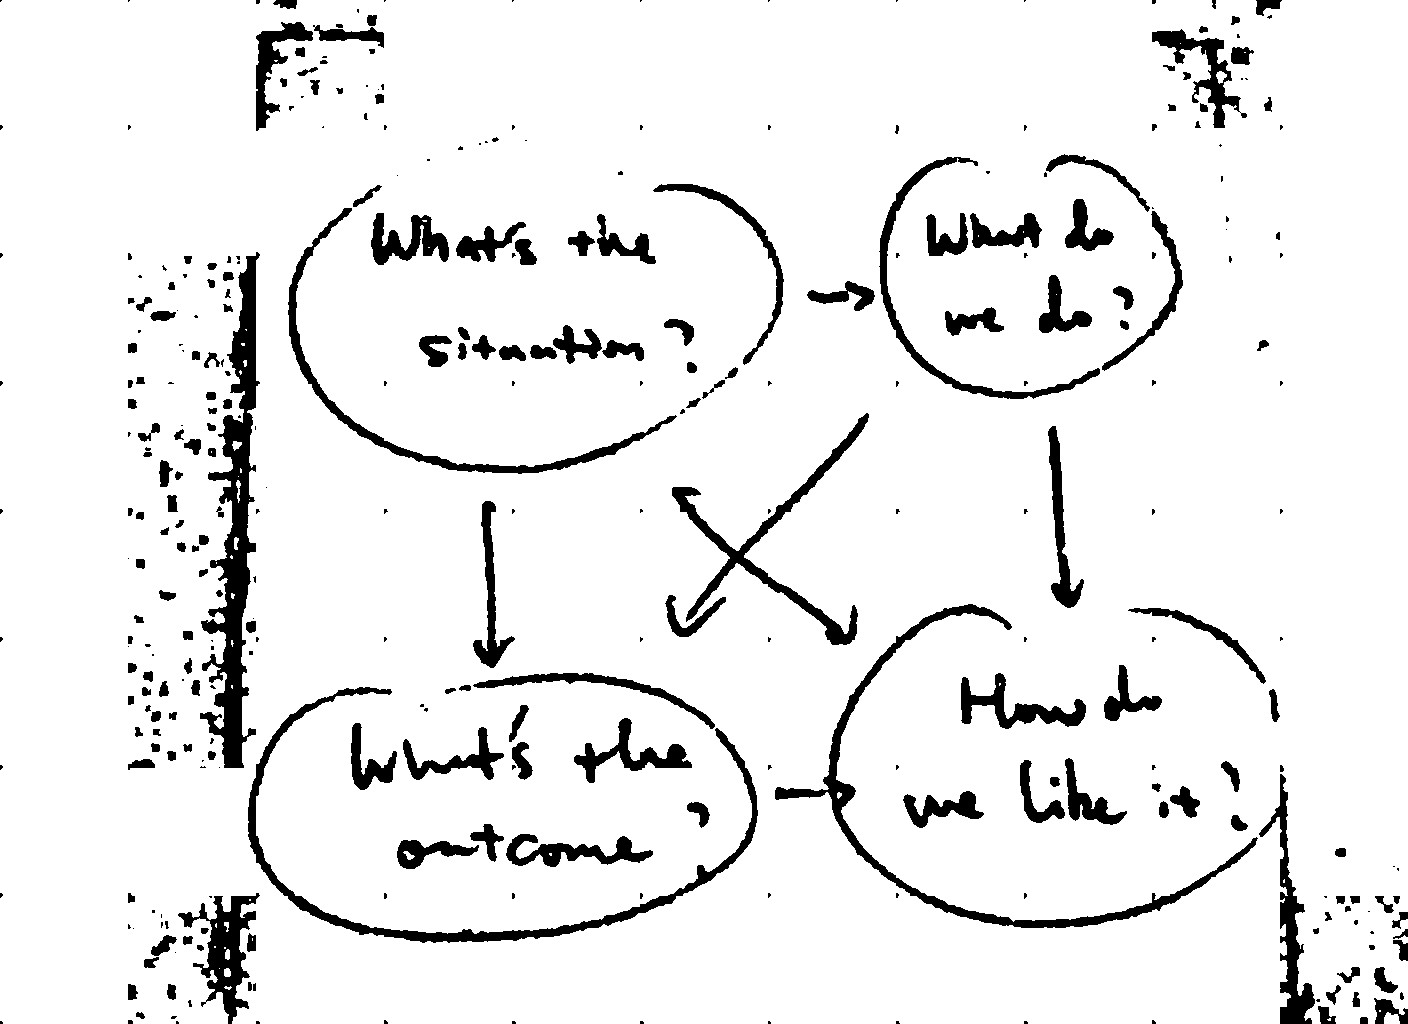 What's the
situation?
What do
we do?
What's the
outcome?
How do
we like it?